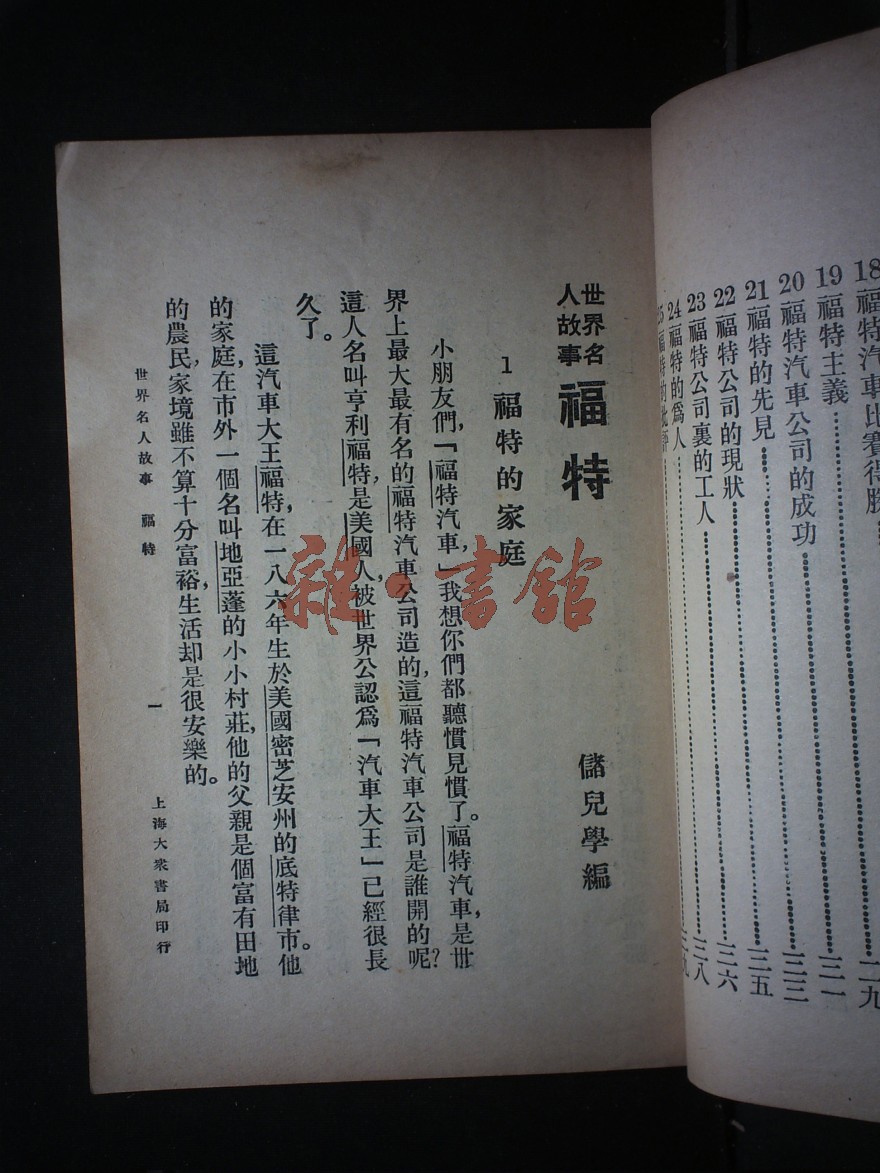 18福特汽車比賽得勝……二九
19福特主義……三一
20福特汽車公司的成功……三三
21福特的先見……三五
22福特公司的現狀……三六
23福特公司裏的工人……三八
24福特的爲人……三九
25福特的批評
世界名人故事 福特
儲兒學編
1 福特的家庭
小朋友們,「福特汽車,」我想你們都聽慣見慣了。福特汽車,是世
界上最大最有名的福特汽車公司造的,這福特汽車公司是誰開的呢?
這人名叫亨利福特,是美國人,被世界公認爲「汽車大王」已經很長
久了。
這汽車大王福特,在一八六年生於美國密芝安州的底特律市。他
的家庭,在市外一個名叫地亞蓬的小小村莊,他的父親是個富有田地
的農民,家境雖不算十分富裕,生活却是很安樂的。
世界名人故事 福特
一
上海大衆書局印行
雜·書館